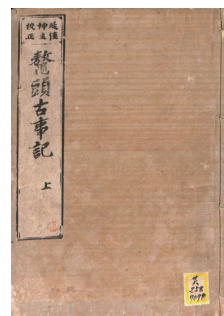 延佳
神主
校正
鼇頭古事記
上